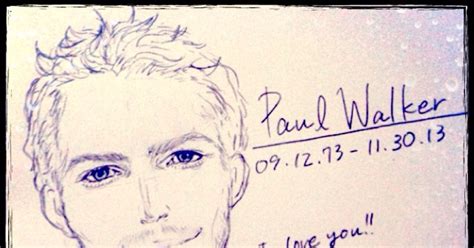 Paul Walker
09.12.73 - 11.30.13
I love you!!